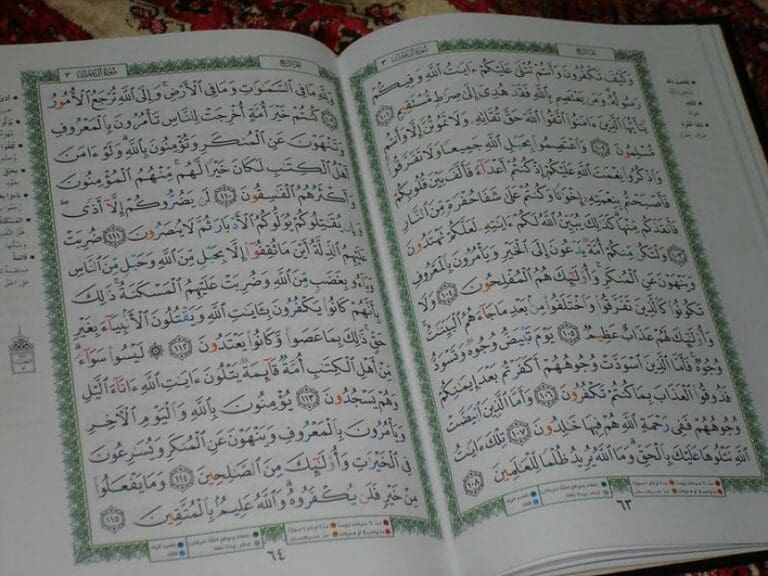 سورة آل عمران ٣
وَكَيْفَ تَكْفُرُونَ وَأَنتُمْ تُتْلَىٰ عَلَيْكُمْ ءَايَٰتُ ٱللَّهِ وَفِيكُمْ
رَسُولُهُۥ وَمَن يَعْتَصِم بِٱللَّهِ فَقَدْ هُدِىَ إِلَىٰ صِرَٰطٍ مُّسْتَقِيمٍ ١٠١
يَٰٓأَيُّهَا ٱلَّذِينَ ءَامَنُوا۟ ٱتَّقُوا۟ ٱللَّهَ حَقَّ تُقَاتِهِۦ وَلَا تَمُوتُنَّ إِلَّا وَأَنتُم
مُّسْلِمُونَ ١٠٢ وَٱعْتَصِمُوا۟ بِحَبْلِ ٱللَّهِ جَمِيعًا وَلَا تَفَرَّقُوا۟
وَٱذْكُرُوا۟ نِعْمَتَ ٱللَّهِ عَلَيْكُمْ إِذْ كُنتُمْ أَعْدَآءً فَأَلَّفَ بَيْنَ قُلُوبِكُمْ
فَأَصْبَحْتُم بِنِعْمَتِهِۦٓ إِخْوَٰنًا وَكُنتُمْ عَلَىٰ شَفَا حُفْرَةٍ مِّنَ ٱلنَّارِ
فَأَنقَذَكُم مِّنْهَا كَذَٰلِكَ يُبَيِّنُ ٱللَّهُ لَكُمْ ءَايَٰتِهِۦ لَعَلَّكُمْ تَهْتَدُونَ ١٠٣
وَلْتَكُن مِّنكُمْ أُمَّةٌ يَدْعُونَ إِلَى ٱلْخَيْرِ وَيَأْمُرُونَ بِٱلْمَعْرُوفِ
وَيَنْهَوْنَ عَنِ ٱلْمُنكَرِ وَأُو۟لَٰٓئِكَ هُمُ ٱلْمُفْلِحُونَ ١٠٤ وَلَا
تَكُونُوا۟ كَٱلَّذِينَ تَفَرَّقُوا۟ وَٱخْتَلَفُوا۟ مِنۢ بَعْدِ مَا جَآءَهُمُ ٱلْبَيِّنَٰتُ
وَأُو۟لَٰٓئِكَ لَهُمْ عَذَابٌ عَظِيمٌ ١٠٥ يَوْمَ تَبْيَضُّ وُجُوهٌ وَتَسْوَدُّ
وُجُوهٌ فَأَمَّا ٱلَّذِينَ ٱسْوَدَّتْ وُجُوهُهُمْ أَكَفَرْتُم بَعْدَ إِيمَٰنِكُمْ
فَذُوقُوا۟ ٱلْعَذَابَ بِمَا كُنتُمْ تَكْفُرُونَ ١٠٦ وَأَمَّا ٱلَّذِينَ ٱبْيَضَّتْ
وُجُوهُهُمْ فَفِى رَحْمَةِ ٱللَّهِ هُمْ فِيهَا خَٰلِدُونَ ١٠٧ تِلْكَ ءَايَٰتُ
ٱللَّهِ نَتْلُوهَا عَلَيْكَ بِٱلْحَقِّ وَمَا ٱللَّهُ يُرِيدُ ظُلْمًا لِّلْعَٰلَمِينَ ١٠٨
٦٣
سورة آل عمران ٣
وَلِلَّهِ مَا فِى ٱلسَّمَٰوَٰتِ وَمَا فِى ٱلْأَرْضِ وَإِلَى ٱللَّهِ تُرْجَعُ ٱلْأُمُورُ
١٠٩ كُنتُمْ خَيْرَ أُمَّةٍ أُخْرِجَتْ لِلنَّاسِ تَأْمُرُونَ بِٱلْمَعْرُوفِ
وَتَنْهَوْنَ عَنِ ٱلْمُنكَرِ وَتُؤْمِنُونَ بِٱللَّهِ وَلَوْ ءَامَنَ
أَهْلُ ٱلْكِتَٰبِ لَكَانَ خَيْرًا لَّهُم مِّنْهُمُ ٱلْمُؤْمِنُونَ
وَأَكْثَرُهُمُ ٱلْفَٰسِقُونَ ١١٠ لَن يَضُرُّوكُمْ إِلَّآ أَذًى
وَإِن يُقَٰتِلُوكُمْ يُوَلُّوكُمُ ٱلْأَدْبَارَ ثُمَّ لَا يُنصَرُونَ ١١١ ضُرِبَتْ
عَلَيْهِمُ ٱلذِّلَّةُ أَيْنَ مَا ثُقِفُوٓا۟ إِلَّا بِحَبْلٍ مِّنَ ٱللَّهِ وَحَبْلٍ مِّنَ ٱلنَّاسِ
وَبَآءُو بِغَضَبٍ مِّنَ ٱللَّهِ وَضُرِبَتْ عَلَيْهِمُ ٱلْمَسْكَنَةُ ذَٰلِكَ
بِأَنَّهُمْ كَانُوا۟ يَكْفُرُونَ بِـَٔايَٰتِ ٱللَّهِ وَيَقْتُلُونَ ٱلْأَنۢبِيَآءَ بِغَيْرِ
حَقٍّ ذَٰلِكَ بِمَا عَصَوا۟ وَّكَانُوا۟ يَعْتَدُونَ ١١٢ ۞ لَيْسُوا۟ سَوَآءً
مِّنْ أَهْلِ ٱلْكِتَٰبِ أُمَّةٌ قَآئِمَةٌ يَتْلُونَ ءَايَٰتِ ٱللَّهِ ءَانَآءَ ٱلَّيْلِ
وَهُمْ يَسْجُدُونَ ١١٣ يُؤْمِنُونَ بِٱللَّهِ وَٱلْيَوْمِ ٱلْءَاخِرِ
وَيَأْمُرُونَ بِٱلْمَعْرُوفِ وَيَنْهَوْنَ عَنِ ٱلْمُنكَرِ وَيُسَٰرِعُونَ
فِى ٱلْخَيْرَٰتِ وَأُو۟لَٰٓئِكَ مِنَ ٱلصَّٰلِحِينَ ١١٤ وَمَا يَفْعَلُوا۟
مِنْ خَيْرٍ فَلَن يُكْفَرُوهُ وَٱللَّهُ عَلِيمٌۢ بِٱلْمُتَّقِينَ ١١٥
٦٤